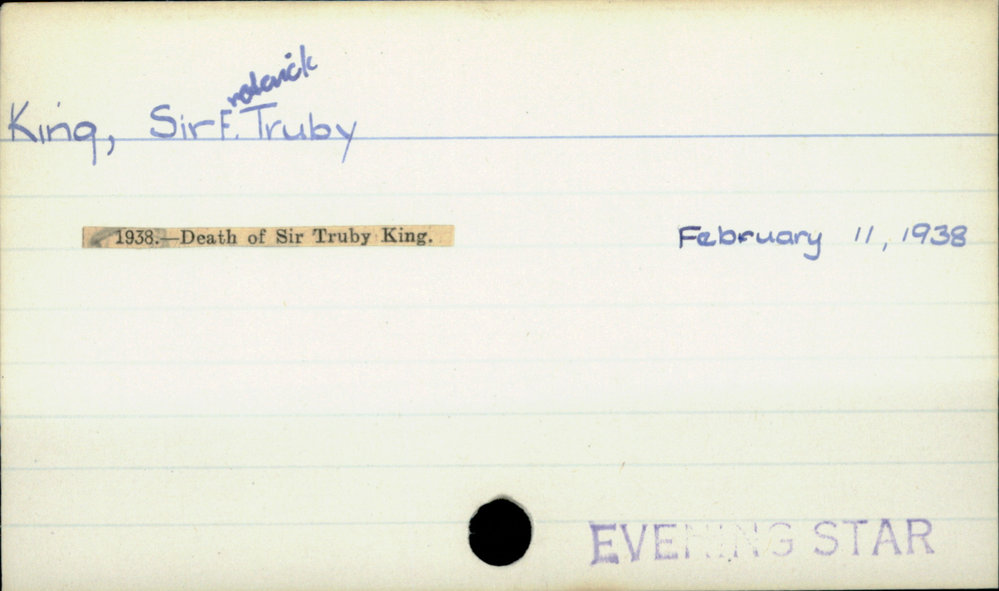 King, Sir F. Truby
1938.—Death of Sir Truby King.
February 11, 1938
EVENING STAR